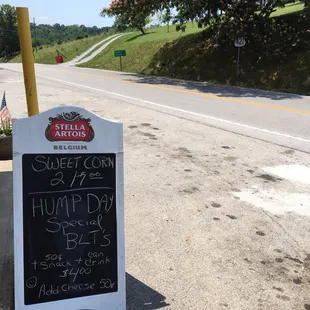 STELLA
ARTOIS
BELGIUM
SWEET CORN
2/$1.00
HUMP DAY
Special
BLT's
50¢ can
+ Snack + Drink
$4.00
Add Cheese 50¢